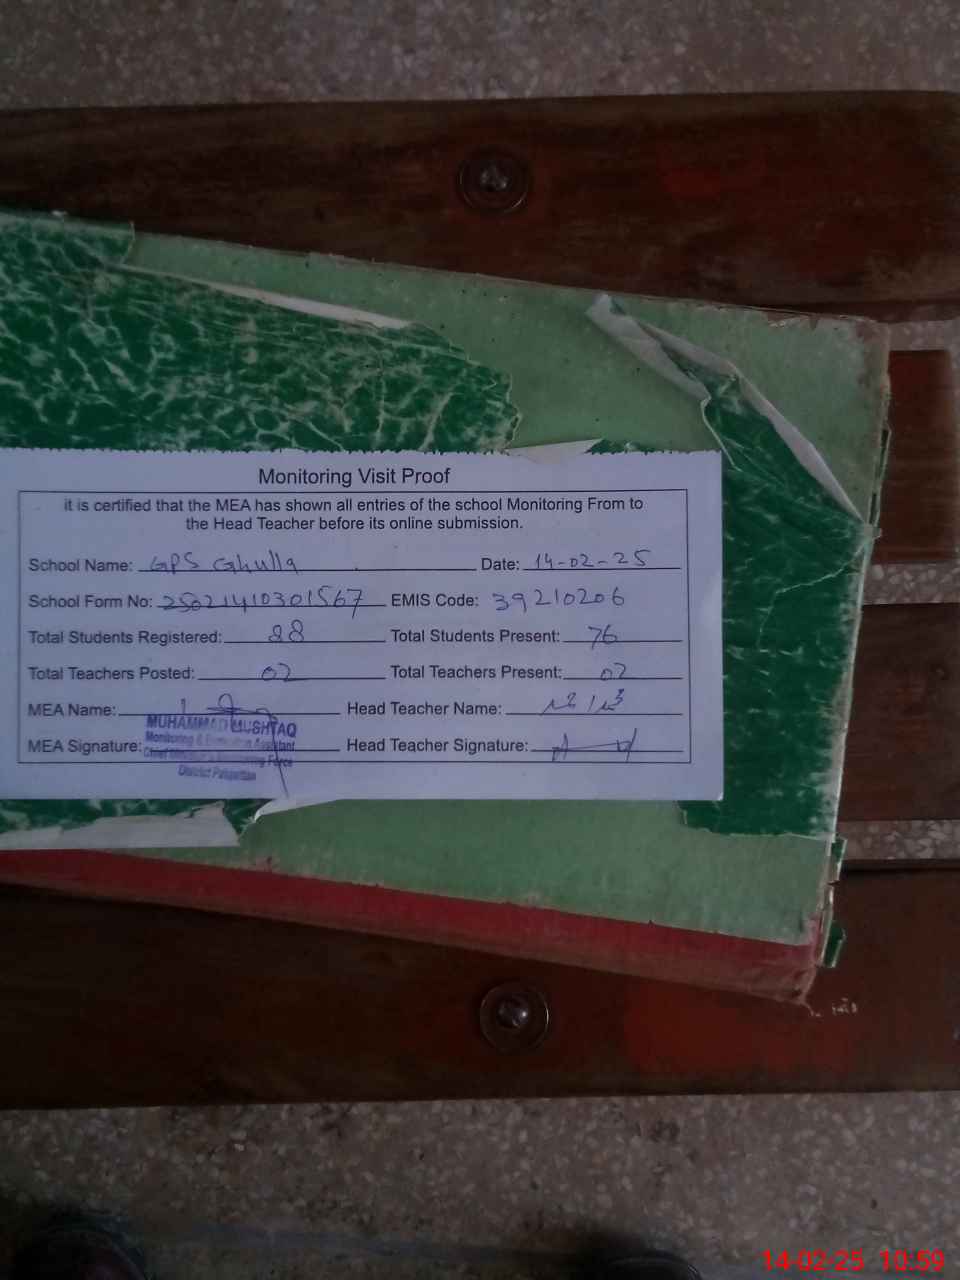 Monitoring Visit Proof
it is certified that the MEA has shown all entries of the school Monitoring From to
the Head Teacher before its online submission.
School Name: GPS Ghulla Date: 14-02-25
School Form No: 25021410301567 EMIS Code: 39210206
Total Students Registered: 88 Total Students Present: 76
Total Teachers Posted: 02 Total Teachers Present: 02
MEA Name: Head Teacher Name:
MUHAMMAD MUSHTAQ
Monitoring & Evaluation Assistant
MEA Signature: Head Teacher Signature:
Chief Minister's Monitoring Force
District Pakpattan
14-02-25 10:59